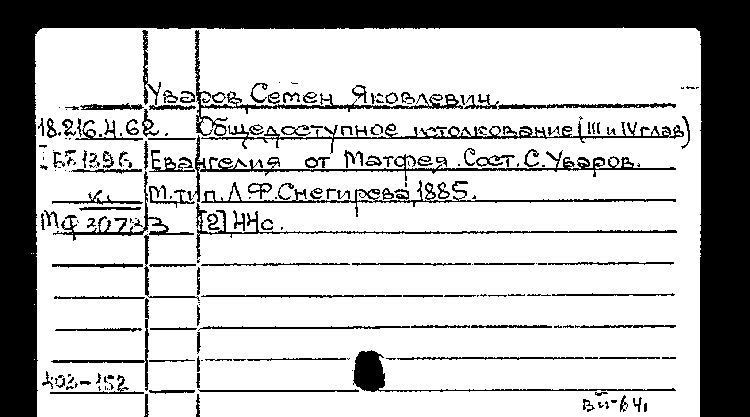 Уваров, Семен Яковлевич.
18.216.4.62. Общедоступное истолкование (III и IV глав)
Евангелия от Матфея. Сост. С. Уваров.
к. М. тип. Л. Ф. Снегирева, 1885.
МФ 30783 [2] 44с.
403-152